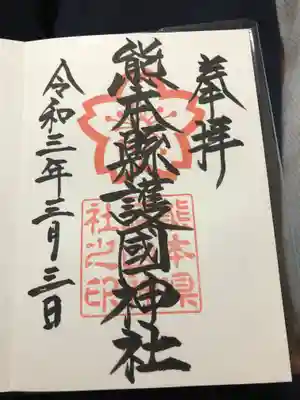 奉拝
熊本縣護國神社
熊本県
社之印
令和三年三月三日